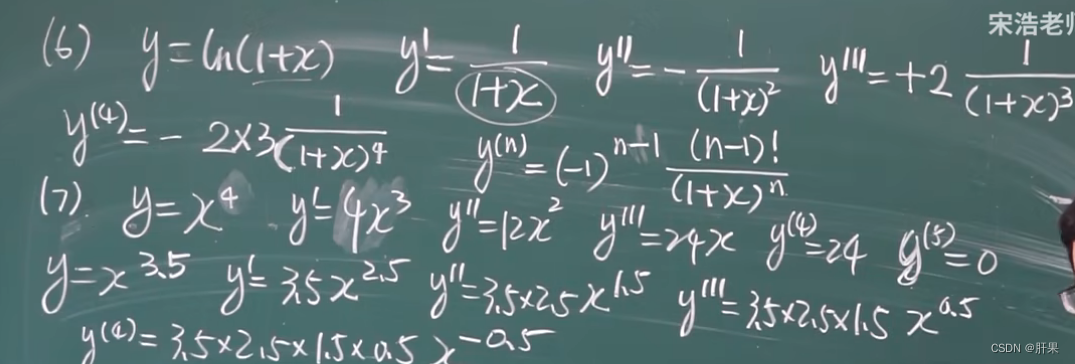 宋浩老师
(6) y=ln(1+x) y'=1/(1+x) y''=-1/(1+x)² y'''=+2 1/(1+x)³
y⁽⁴⁾=-2×3 1/(1+x)⁴ y⁽ⁿ⁾=(-1)ⁿ⁻¹ (n-1)!/(1+x)ⁿ
(7). y=x⁴ y'=4x³ y''=12x² y'''=24x y⁽⁴⁾=24 y⁽⁵⁾=0
y=x^3.5 y'=3.5x^2.5 y''=3.5×2.5x^1.5 y'''=3.5×2.5×1.5 x^0.5
y⁽⁴⁾=3.5×2.5×1.5×0.5 x^-0.5
CSDN @肝果